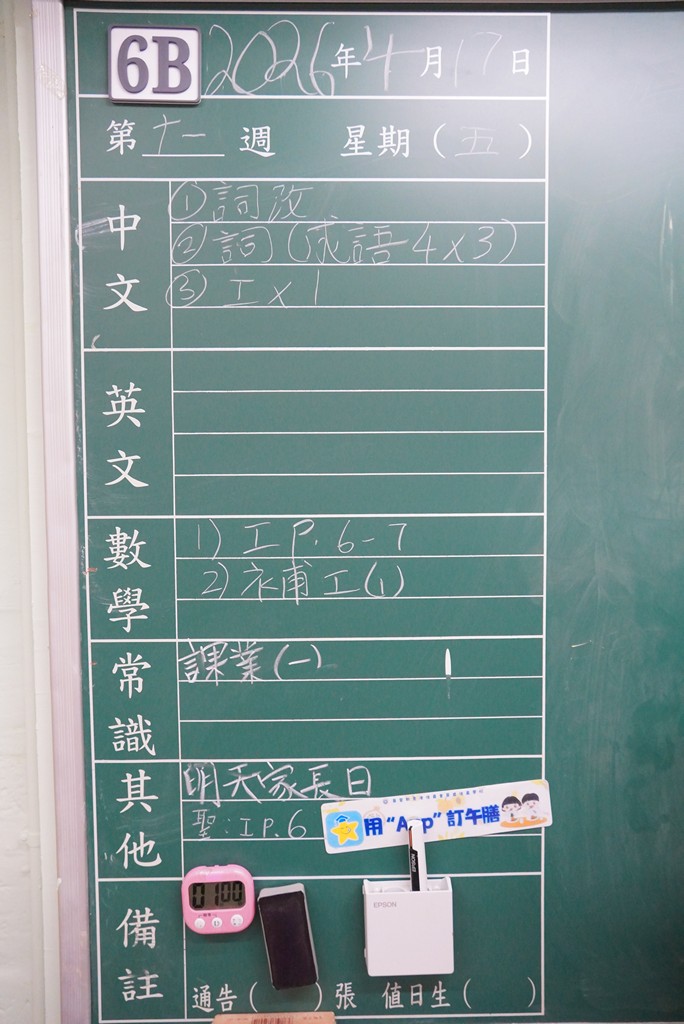 6B 2026年4月17日
第十一週 星期(五)
中文
①詞改
②詞(成語4x3)
③工x1
英文
數學
1) 工P.6-7
2) 補工(1)
常識
課業(一)
其他
明天家長日
聖:工P.6
用“App”訂午膳
備註
01 00
EPSON
EPSON
通告( )張 值日生( )